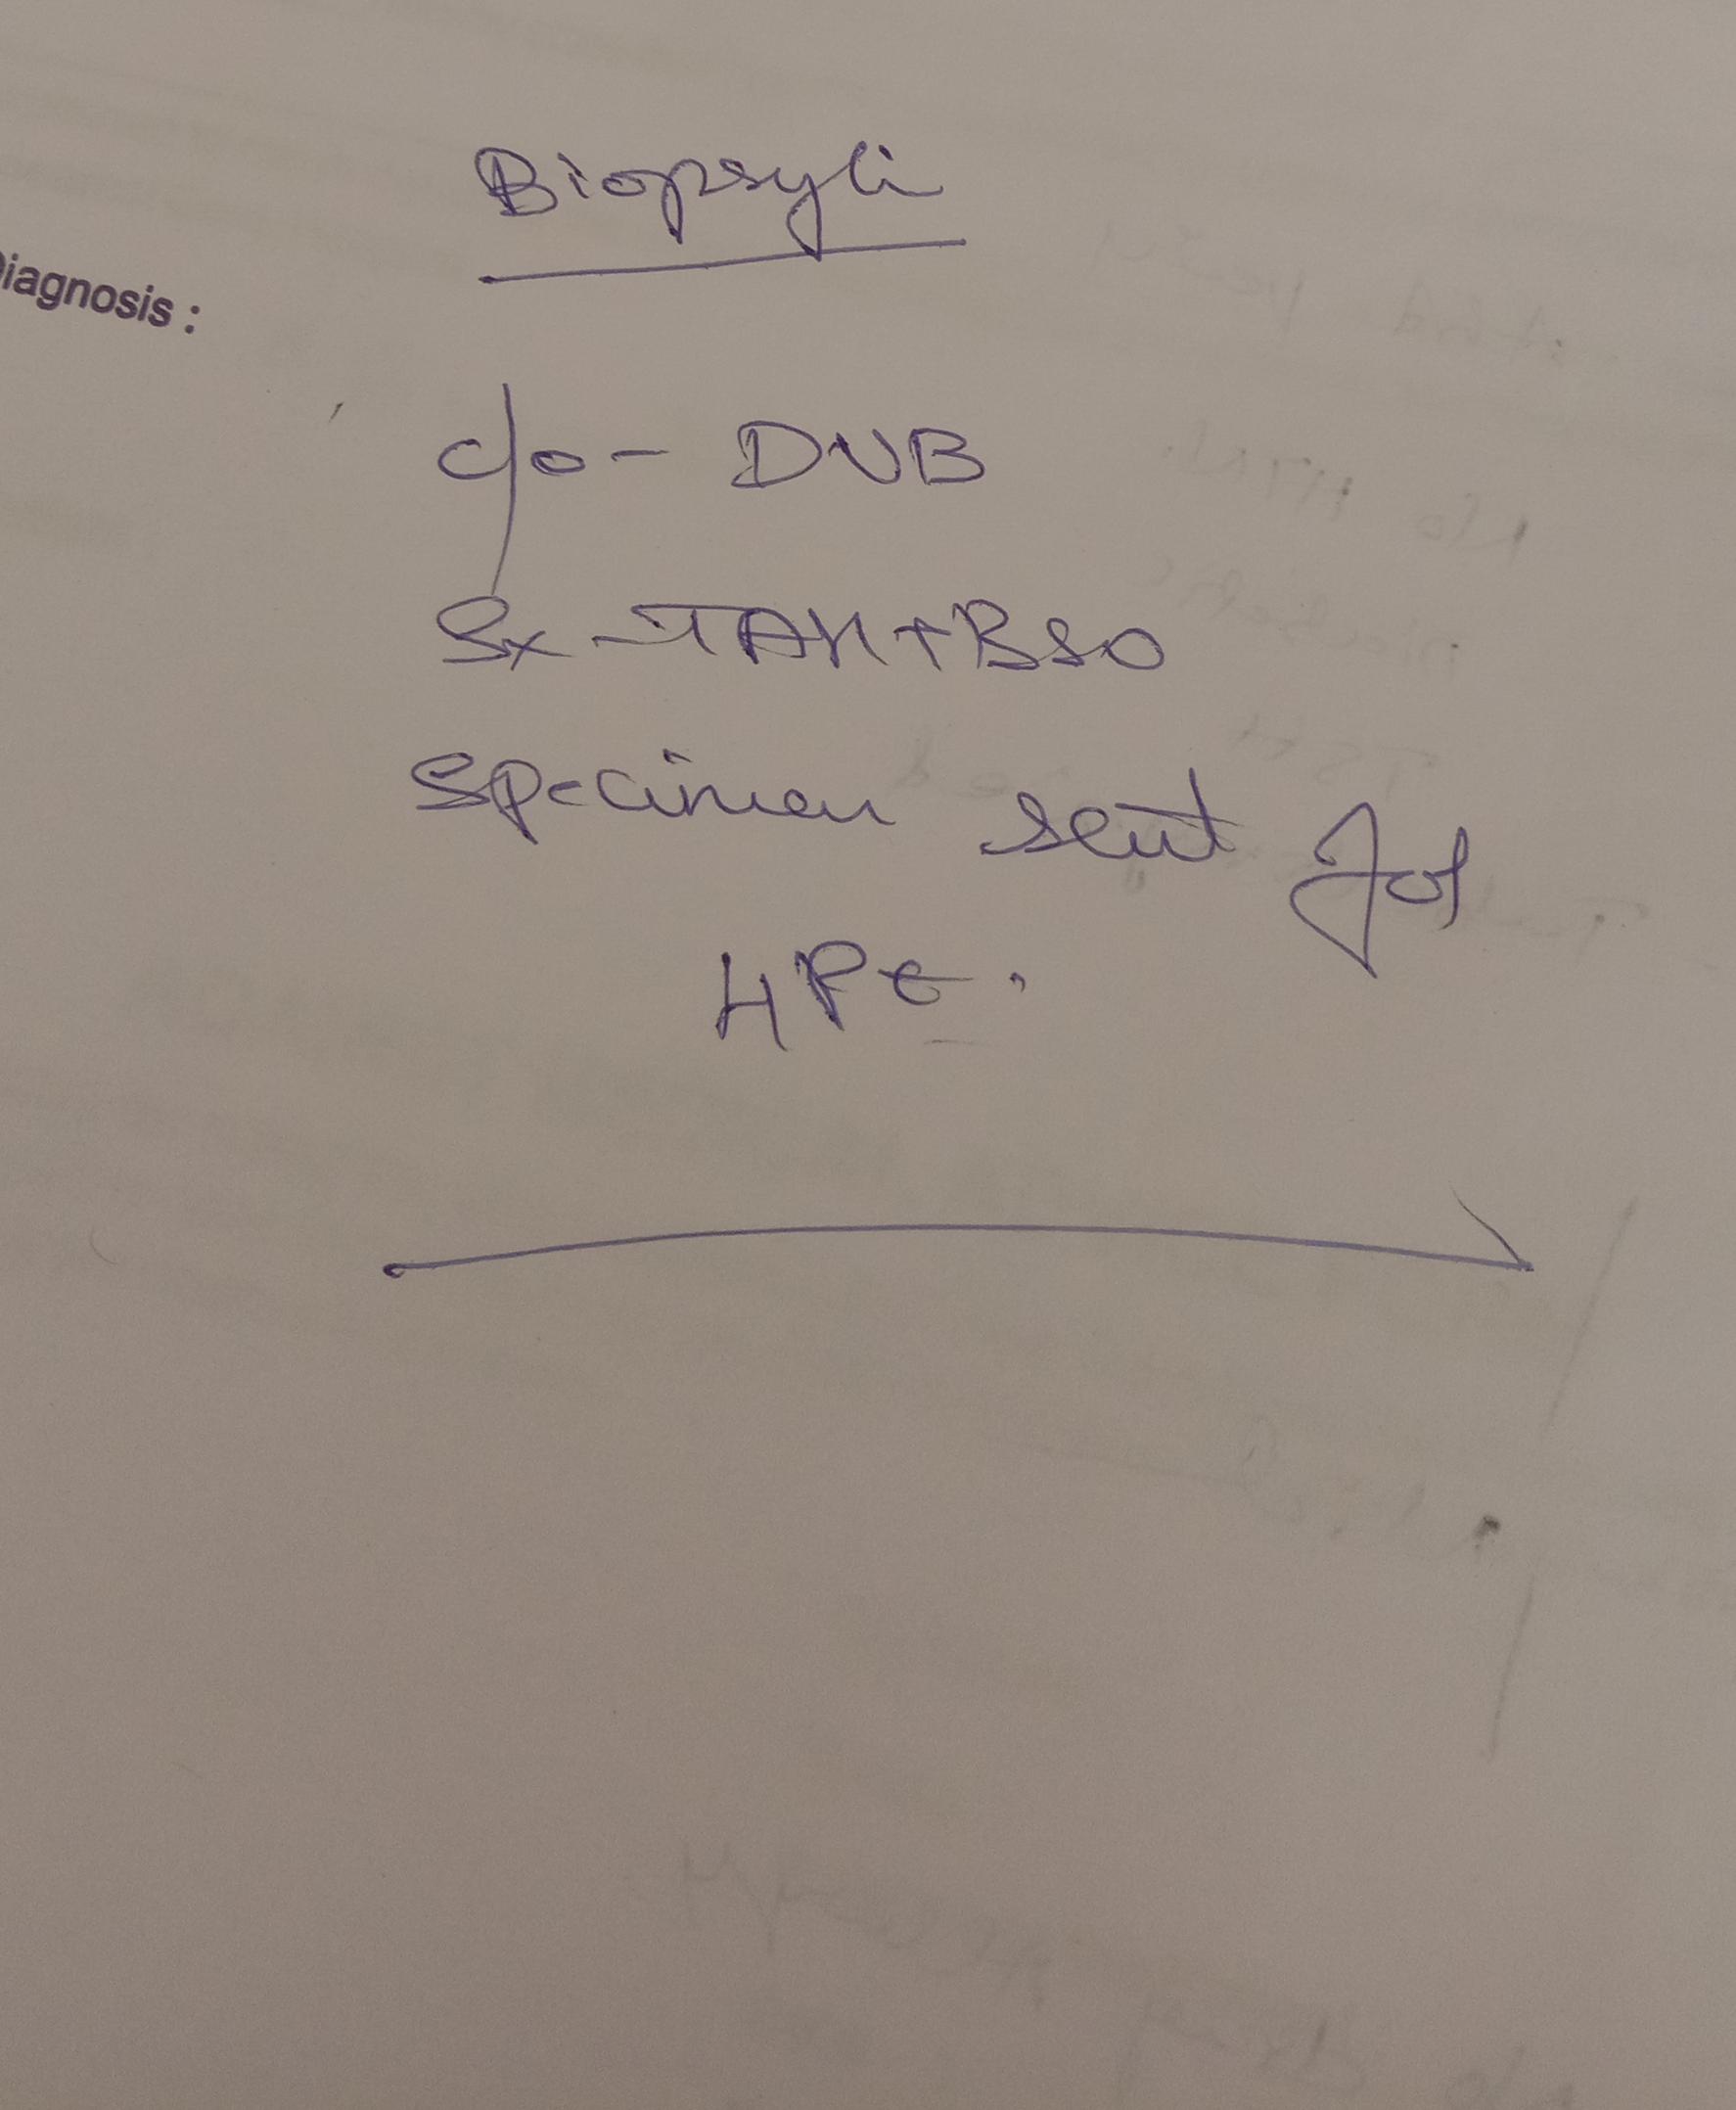 Biopsyli
Diagnosis :
c/o - DUB
Sx - TAH+BSO
Specimen sent for
HPE.